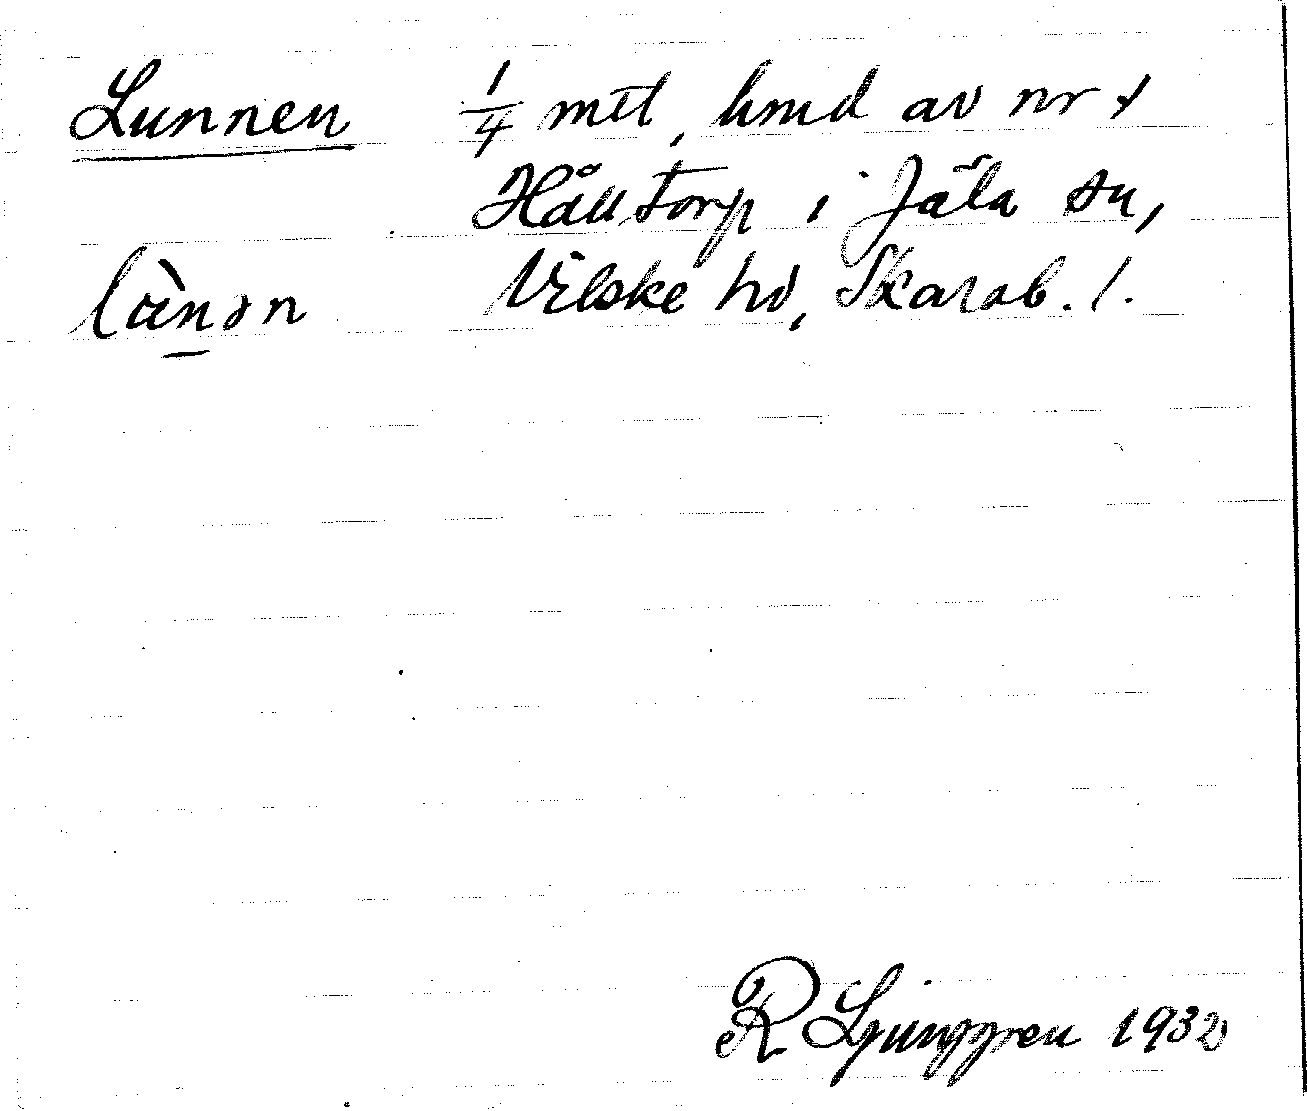 Lunnen ¼ mtl, hmd av nr 1
Hålltorp i Jäla sn,
Vilske hd, Skarab. l.
R Ljunggren 1932